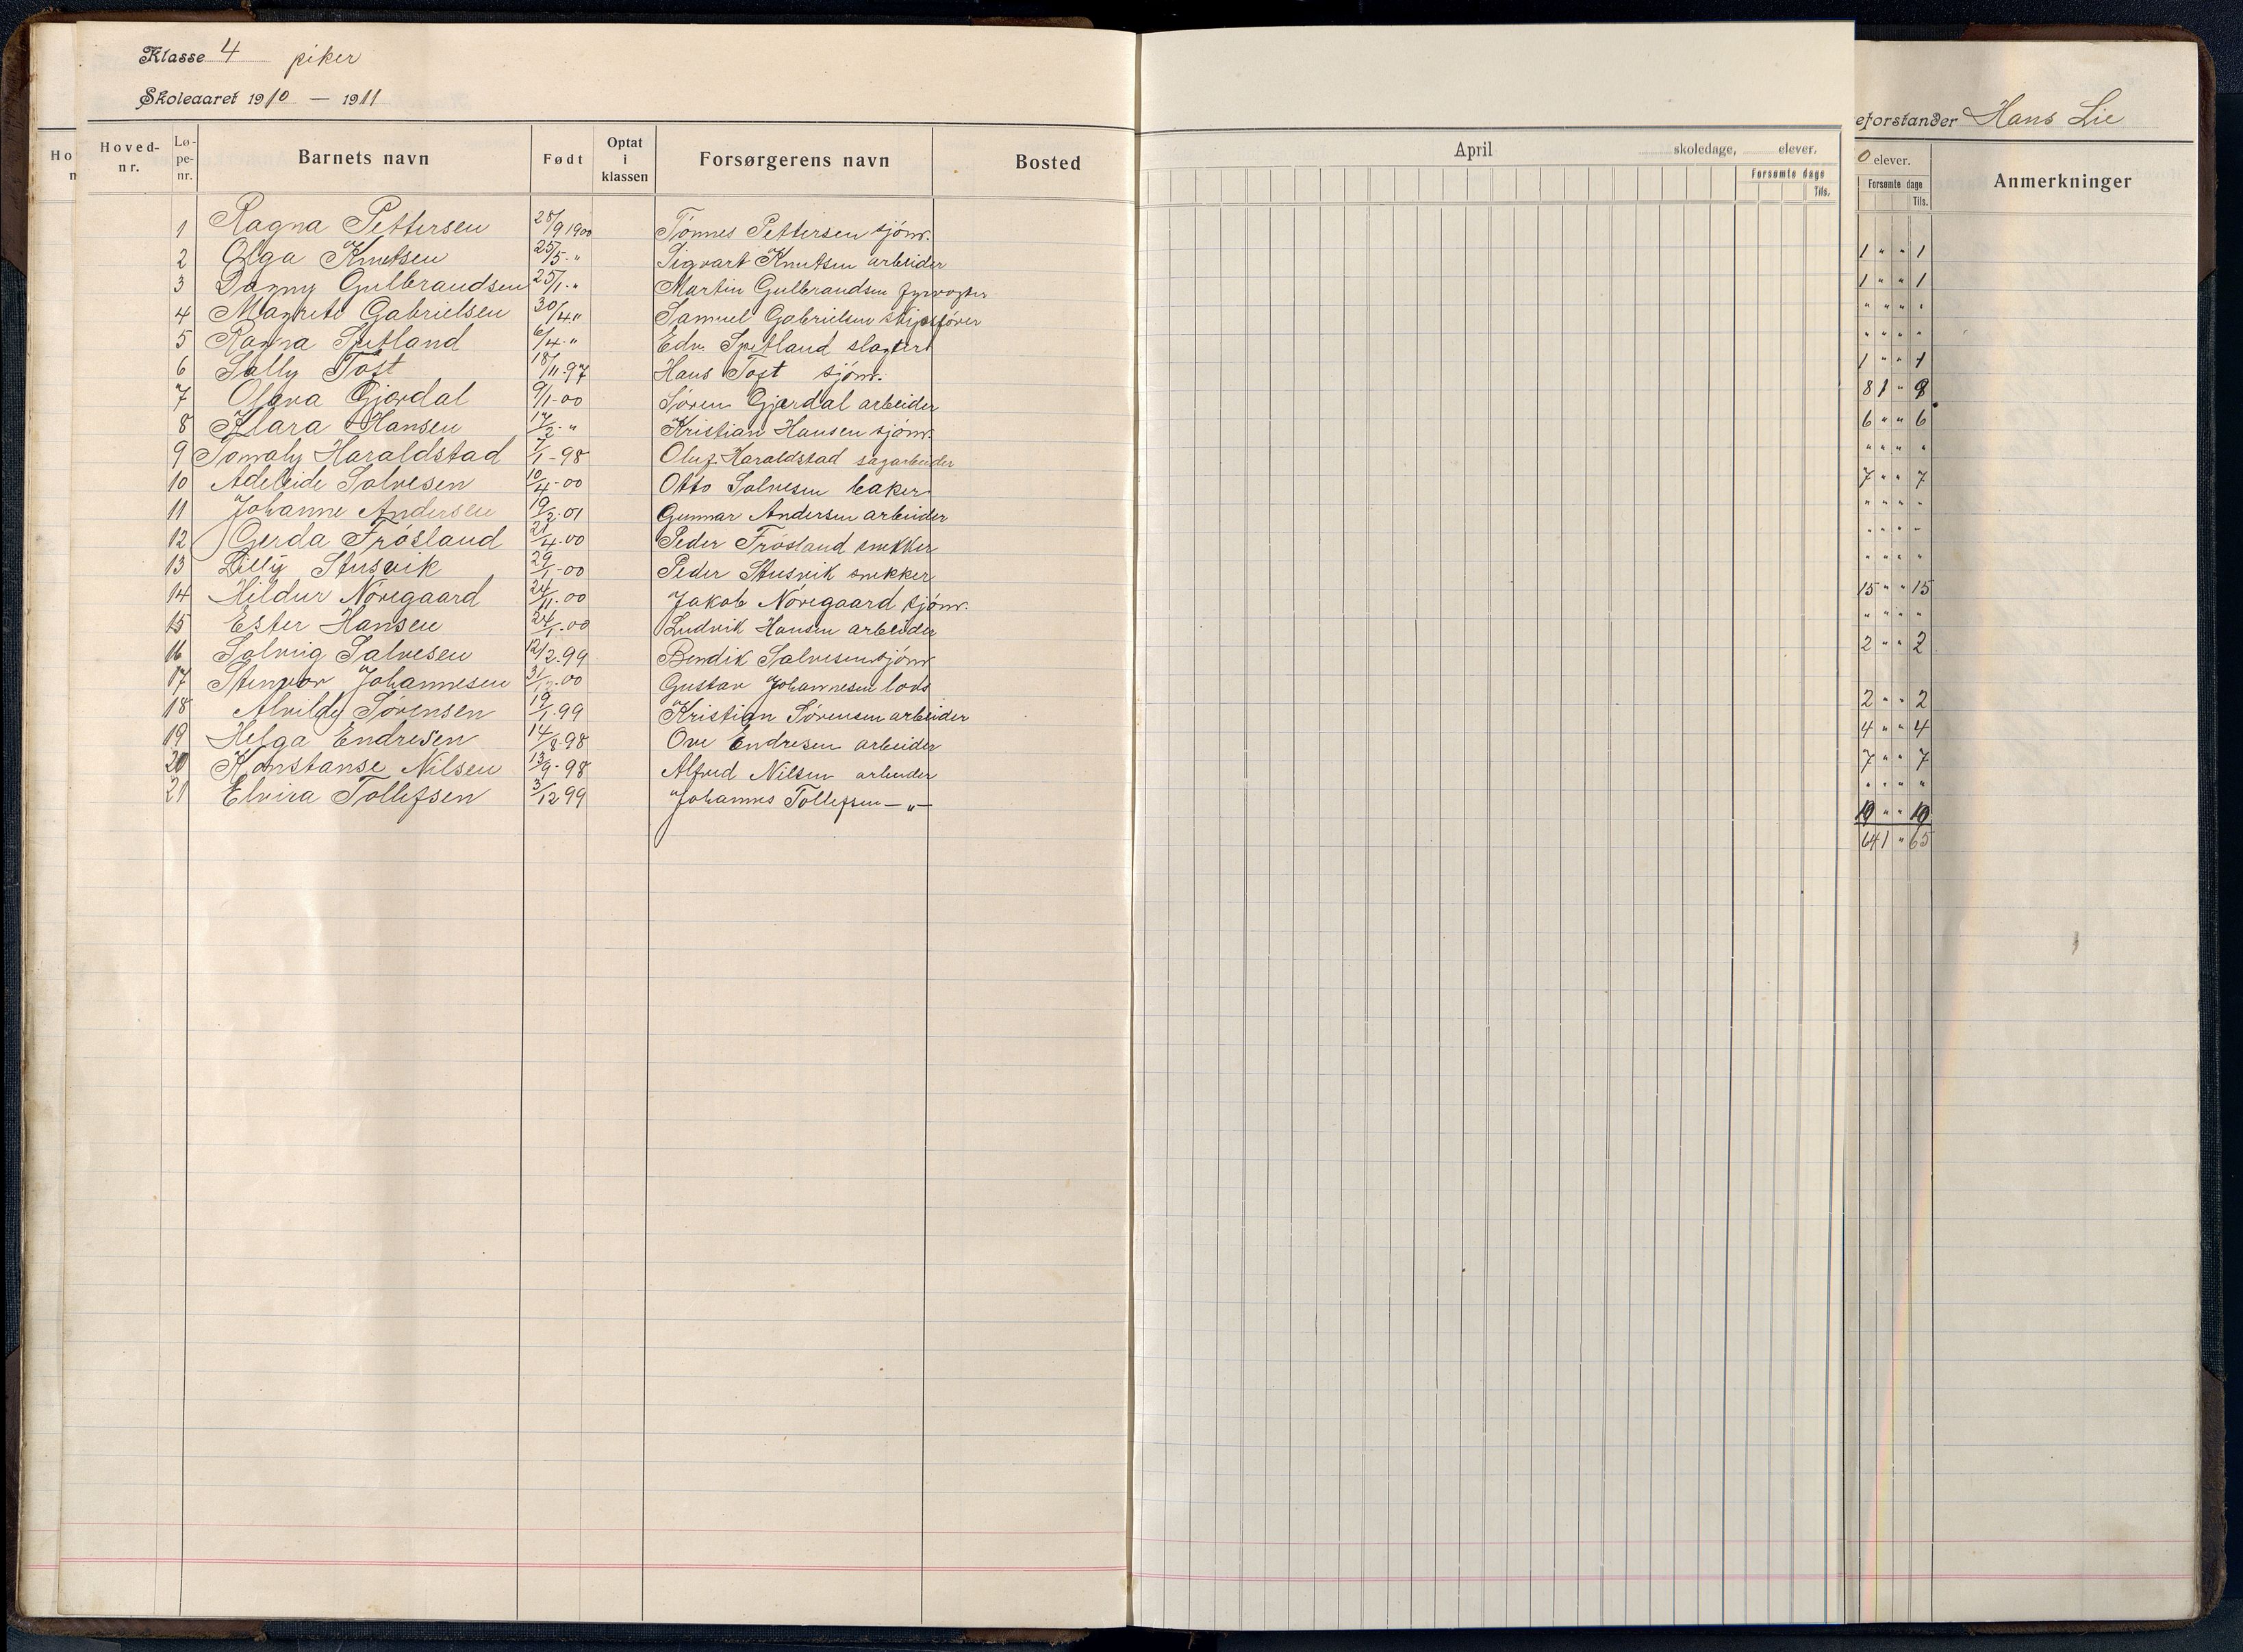 Klasse 4 piker
Skoleaaret 1910 — 1911
Hoved-nr. Lø-pe-nr. Barnets navn Født Optat i klassen Forsørgerens navn Bosted
1 Ragna Pettersen 28/9 1900 Tønnes Pettersen sjøm.
2 Olga Knutsen 25/5 - " Sigvart Knutsen arbeider
3 Dagny Gulbrandsen 25/1 - " Martin Gulbrandsen fyrvogter
4 Magrete Gabrielsen 30/4 " Samuel Gabrielsen skipsfører
5 Ragna Spetland 6/4 - " Edv. Spetland slagter
6 Sally Toft 18/11-97 Hans Toft sjøm.
7 Olava Gjerdal 9/1-00 Søren Gjerdal arbeider
8 Klara Hansen 17/2 - " Kristian Hansen sjøm.
9 Haraldstad 7/1-98 Oluf Haraldstad sagarbeider
10 Adeleide Salvesen 10/4-00 Otto Salvesen baker
11 Johanne Andersen 19/2-01 Gunnar Andersen arbeider
12 Gerda Frøsland 21/4-00 Peder Frøsland snekker
13 Lilly Stusvik 29/1-00 Peder Stusvik snekker
14 Hildur Noregaard 24/11-00 Jakob Noregaard sjøm.
15 Ester Hansen 24/1-00 Ludvik Hansen arbeider
16 Solveig Salvesen 12/2.99 Bendik Salvesen sjøm
17 Stenvor Johannesen 31/12-00 Gustav Johannesen lods
18 Alvilde Sørensen 19/1.99 Kristian Sørensen arbeider
19 Helga Endresen 14/8-98 Ove Endresen arbeider
20 Konstanse Nilsen 13/9-98 Alfred Nilsen arbeider
21 Elvira Tollefsen 3/12 99 Johannes Tollefsen — " —
April skoledage, elever.
Forsømte dage
Tils.
eforstander Hans Lie
0 elever.
Forsømte dage Anmerkninger
Tils.
1 " " 1
1 " " 1
" " " "
" " " "
1 " " 1
8 1 " 9
6 " " 6
" " " "
7 " " 7
" " " "
" " " "
" " " "
15 " " 15
" " " "
2 " " 2
2 " " 2
4 " " 4
7 " " 7
" " " "
10 " " 10
64 1 " 65
Ho
n